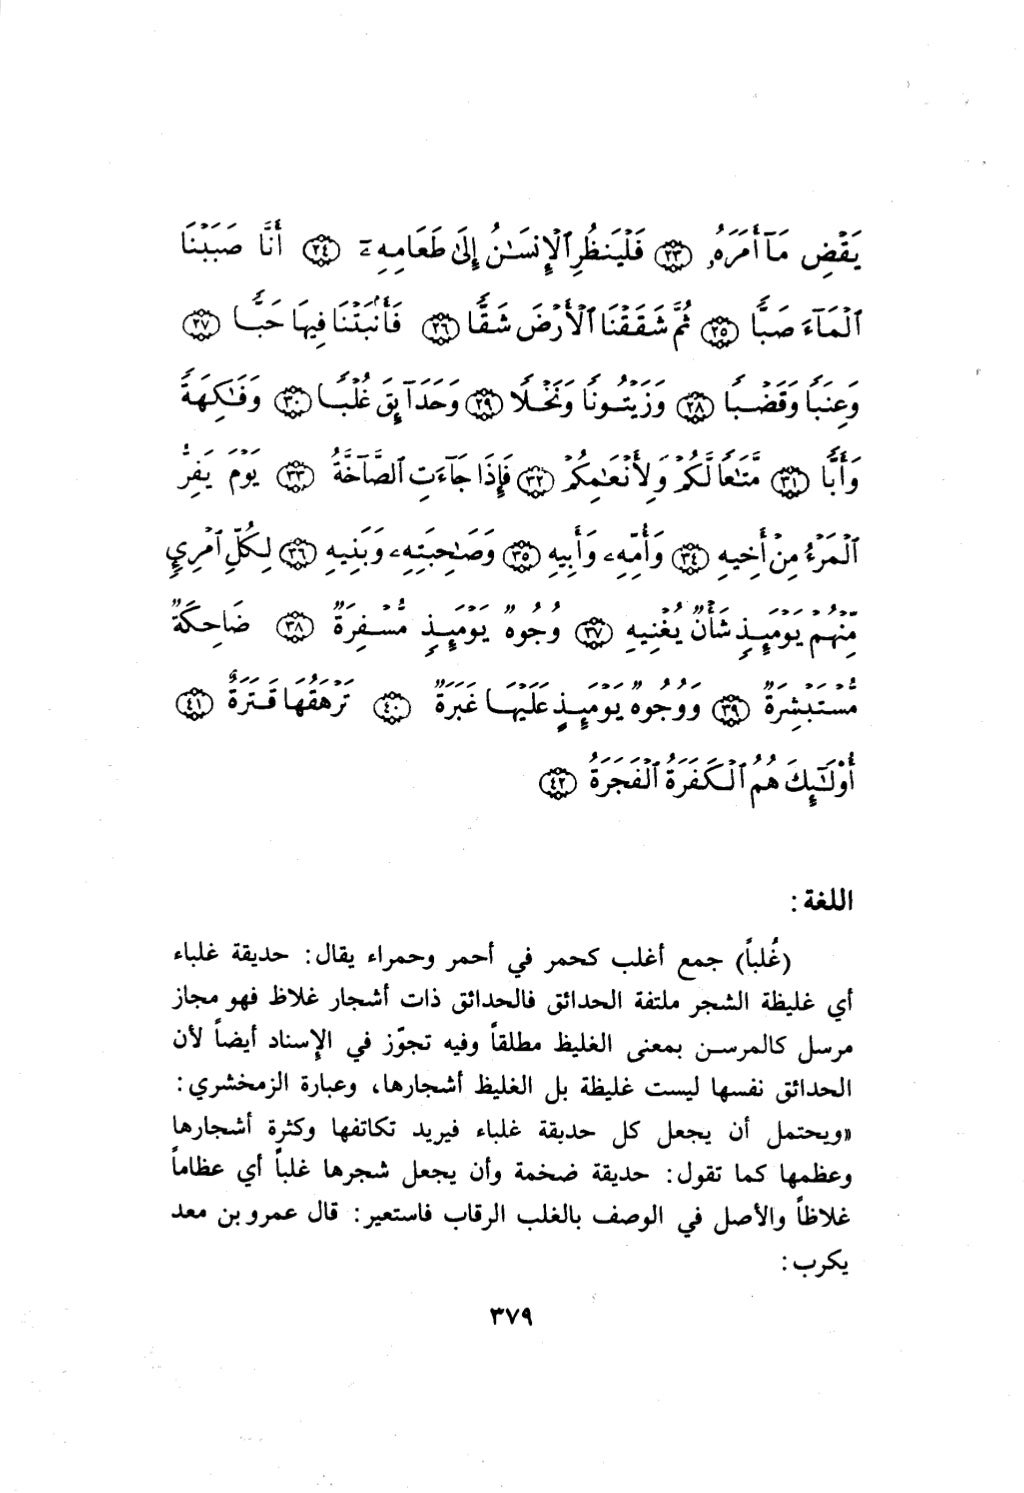 يَقْضِ مَآ أَمَرَهُۥ ﴿٢٣﴾ فَلْيَنظُرِ ٱلْإِنسَـٰنُ إِلَىٰ طَعَامِهِۦٓ ﴿٢٤﴾ أَنَّا صَبَبْنَا
ٱلْمَآءَ صَبًّا ﴿٢٥﴾ ثُمَّ شَقَقْنَا ٱلْأَرْضَ شَقًّا ﴿٢٦﴾ فَأَنۢبَتْنَا فِيهَا حَبًّا ﴿٢٧﴾
وَعِنَبًا وَقَضْبًا ﴿٢٨﴾ وَزَيْتُونًا وَنَخْلًا ﴿٢٩﴾ وَحَدَآئِقَ غُلْبًا ﴿٣٠﴾ وَفَـٰكِهَةً
وَأَبًّا ﴿٣١﴾ مَّتَـٰعًا لَّكُمْ وَلِأَنْعَـٰمِكُمْ ﴿٣٢﴾ فَإِذَا جَآءَتِ ٱلصَّآخَّةُ ﴿٣٣﴾ يَوْمَ يَفِرُّ
ٱلْمَرْءُ مِنْ أَخِيهِ ﴿٣٤﴾ وَأُمِّهِۦ وَأَبِيهِ ﴿٣٥﴾ وَصَـٰحِبَتِهِۦ وَبَنِيهِ ﴿٣٦﴾ لِكُلِّ ٱمْرِئٍ
مِّنْهُمْ يَوْمَئِذٍ شَأْنٌ يُغْنِيهِ ﴿٣٧﴾ وُجُوهٌ يَوْمَئِذٍ مُّسْفِرَةٌ ﴿٣٨﴾ ضَاحِكَةٌ
مُّسْتَبْشِرَةٌ ﴿٣٩﴾ وَوُجُوهٌ يَوْمَئِذٍ عَلَيْهَا غَبَرَةٌ ﴿٤٠﴾ تَرْهَقُهَا قَتَرَةٌ ﴿٤١﴾
أُو۟لَـٰٓئِكَ هُمُ ٱلْكَفَرَةُ ٱلْفَجَرَةُ ﴿٤٢﴾
اللغة :
(غُلباً) جمع أغلب كحمر في أحمر وحمراء يقال : حديقة غلباء
أي غليظة الشجر ملتفة الحدائق فالحدائق ذات أشجار غلاظ فهو مجاز
مرسل كالمرسن بمعنى الغليظ مطلقاً وفيه تجوّز في الإسناد أيضاً لأن
الحدائق نفسها ليست غليظة بل الغليظ أشجارها، وعبارة الزمخشري :
«ويحتمل أن يجعل كل حديقة غلباء فيريد تكاتفها وكثرة أشجارها
وعظمها كما تقول : حديقة ضخمة وأن يجعل شجرها غلباً أي عظاماً
غلاظاً والأصل في الوصف بالغلب الرقاب فاستعير : قال عمرو بن معد
يكرب :
٣٧٩